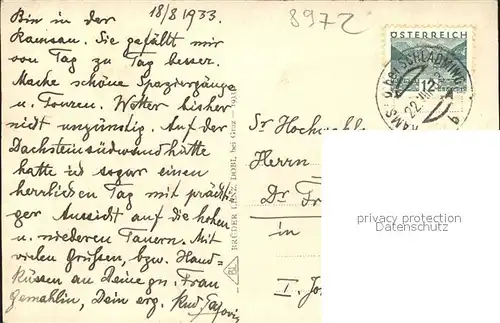 18/8 1933.
8972
Bin in der
Ramsau. Sie gefällt mir
von Tag zu Tag besser.
Mache schöne Spaziergänge
u. Touren. Wetter bisher
nicht ungünstig. Auf der
Dachsteinsüdwandhütte
hatte ich sogar einen
herrlichen Tag mit prächti-
ger Aussicht auf die hohen
u. niederen Tauern. Mit
vielen Grüßen, bzw. Hand-
küssen an Deine gn. Frau
Gemahlin, Dein erg. Rud.
BRÜDER LENZ, DOBL, bei Graz
ÖSTERREICH
12
SCHLADMING
22.
Sr Hochwohl
Herrn
Dr Fr
in
I. Jo
privacy protection
Datenschutz